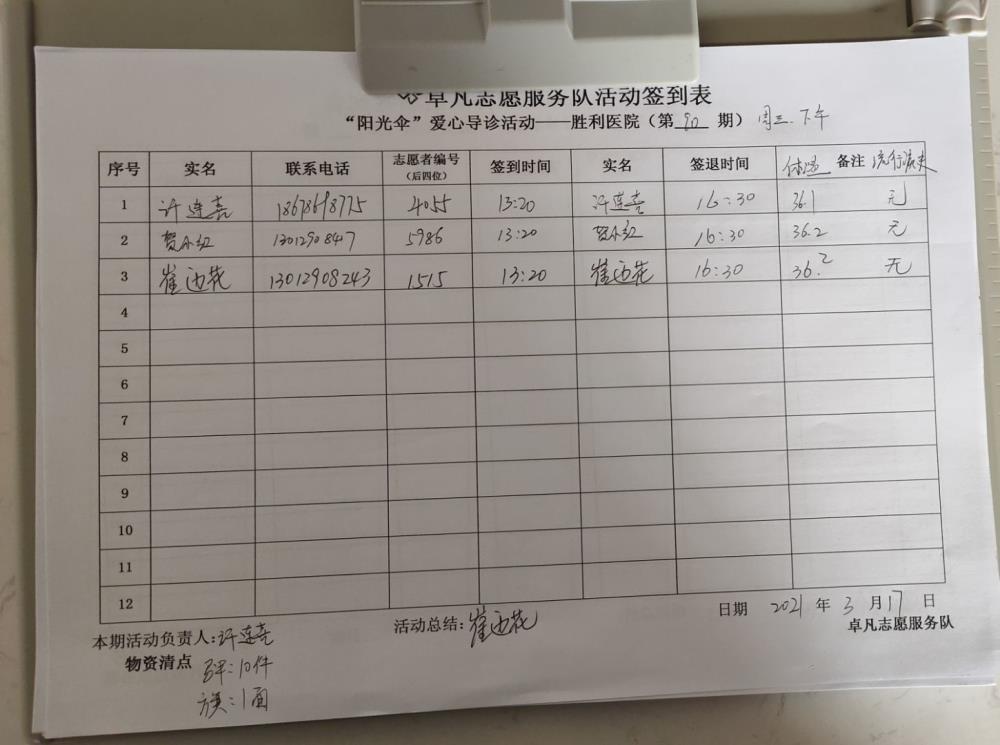 卓凡志愿服务队活动签到表
“阳光伞”爱心导诊活动——胜利医院（第 90 期）周三.下午
序号 实名 联系电话 志愿者编号（后四位） 签到时间 实名 签退时间 体温 备注 流行病史
1 许连喜 18678698775 4055 13:20 许连喜 16:30 36.1 无
2 贺小红 1301290847 5986 13:20 贺小红 16:30 36.2 无
3 崔迎花 13012908243 1515 13:20 崔迎花 16:30 36.2 无
4
5
6
7
8
9
10
11
12
本期活动负责人:许连喜 活动总结:崔迎花 日期 2021 年 3 月 17 日
卓凡志愿服务队
物资清点
:10件
旗:1面